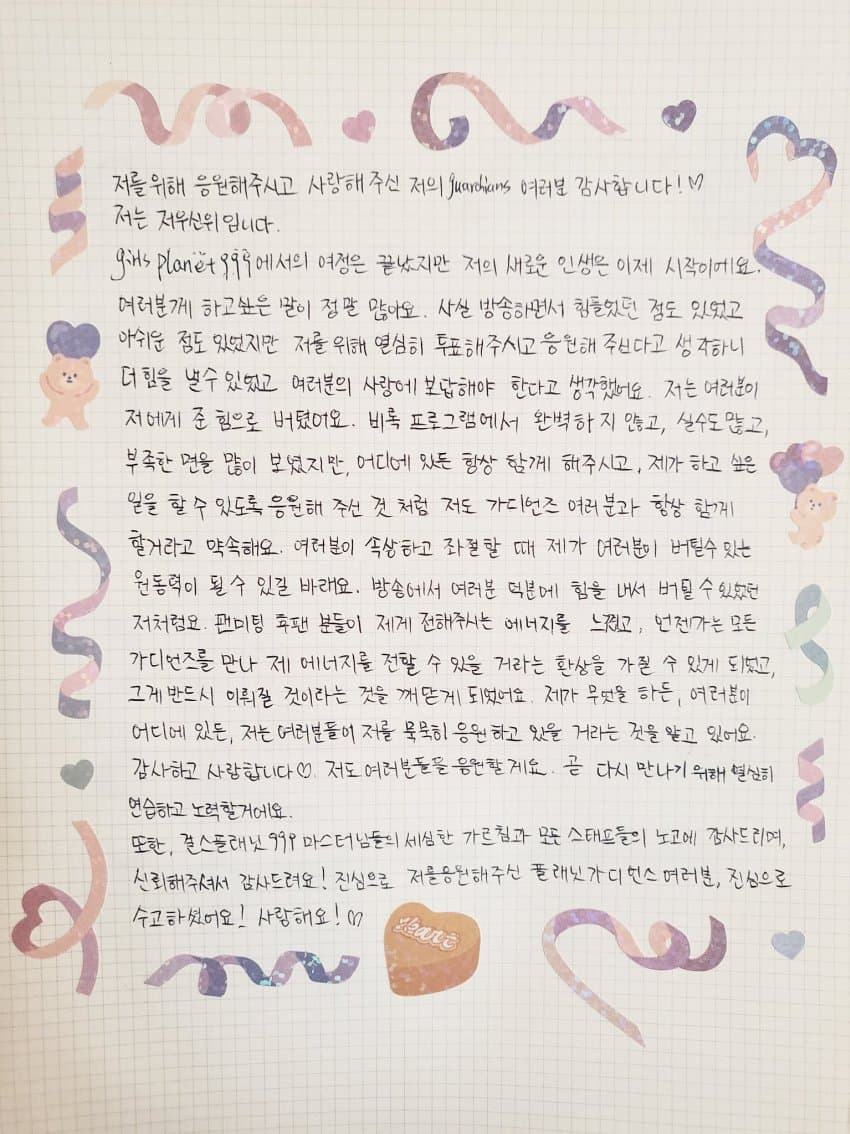 저를 위해 응원해주시고 사랑해 주신 저의 guardians 여러분 감사합니다! ♡
저는 저우신위입니다.
girls planet 999에서의 여정은 끝났지만 저의 새로운 인생은 이제 시작이에요.
여러분께 하고싶은 말이 정말 많아요. 사실 방송하면서 힘들었던 점도 있었고
아쉬운 점도 있었지만 저를 위해 열심히 투표해주시고 응원해 주신다고 생각하니
더 힘을 낼 수 있었고 여러분의 사랑에 보답해야 한다고 생각했어요. 저는 여러분이
저에게 준 힘으로 버텼어요. 비록 프로그램에서 완벽하지 않고, 실수도 많고,
부족한 면을 많이 보였지만, 어디에 있든 항상 함께 해주시고, 제가 하고 싶은
일을 할 수 있도록 응원해 주신 것 처럼 저도 가디언즈 여러분과 항상 함께
할거라고 약속해요. 여러분이 속상하고 좌절할 때 제가 여러분이 버틸수 있는
원동력이 될 수 있길 바래요. 방송에서 여러분 덕분에 힘을 내서 버틸 수 있었던
저처럼요. 팬미팅 후 팬 분들이 제게 전해주시는 에너지를 느꼈고, 언젠가는 모든
가디언즈를 만나 제 에너지를 전할 수 있을 거라는 환상을 가질 수 있게 되었고,
그게 반드시 이뤄질 것이라는 것을 깨닫게 되었어요. 제가 무엇을 하든, 여러분이
어디에 있든, 저는 여러분들이 저를 묵묵히 응원하고 있을 거라는 것을 알고 있어요.
감사하고 사랑합니다♡. 저도 여러분들을 응원할게요. 곧 다시 만나기 위해 열심히
연습하고 노력할거에요.
또한, 걸스플래닛 999 마스터님들의 세심한 가르침과 모든 스태프들의 노고에 감사드리며,
신뢰해주셔서 감사드려요! 진심으로 저를응원해주신 플래닛가디언스 여러분, 진심으로
수고하셨어요! 사랑해요! ♡
Heart